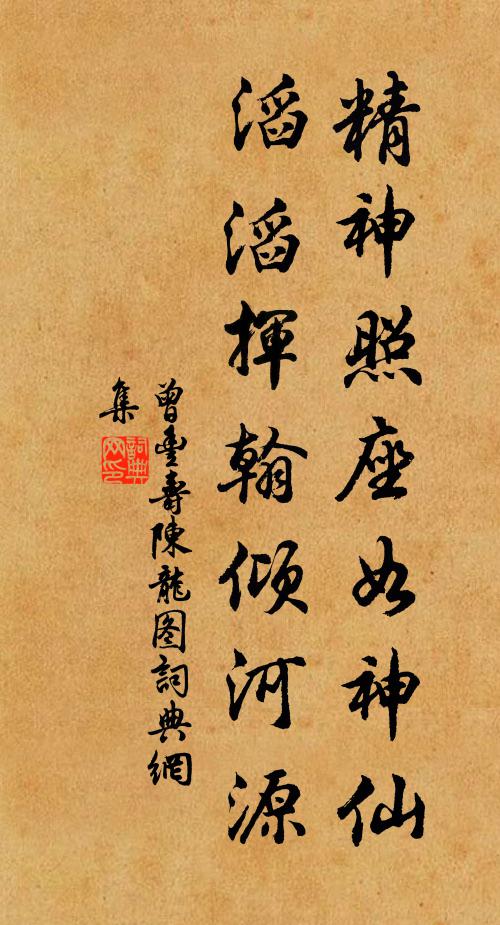 精神照座如神仙
滔滔揮翰傾河源
曾豐壽陳龍图詞典網
集
詞典网印